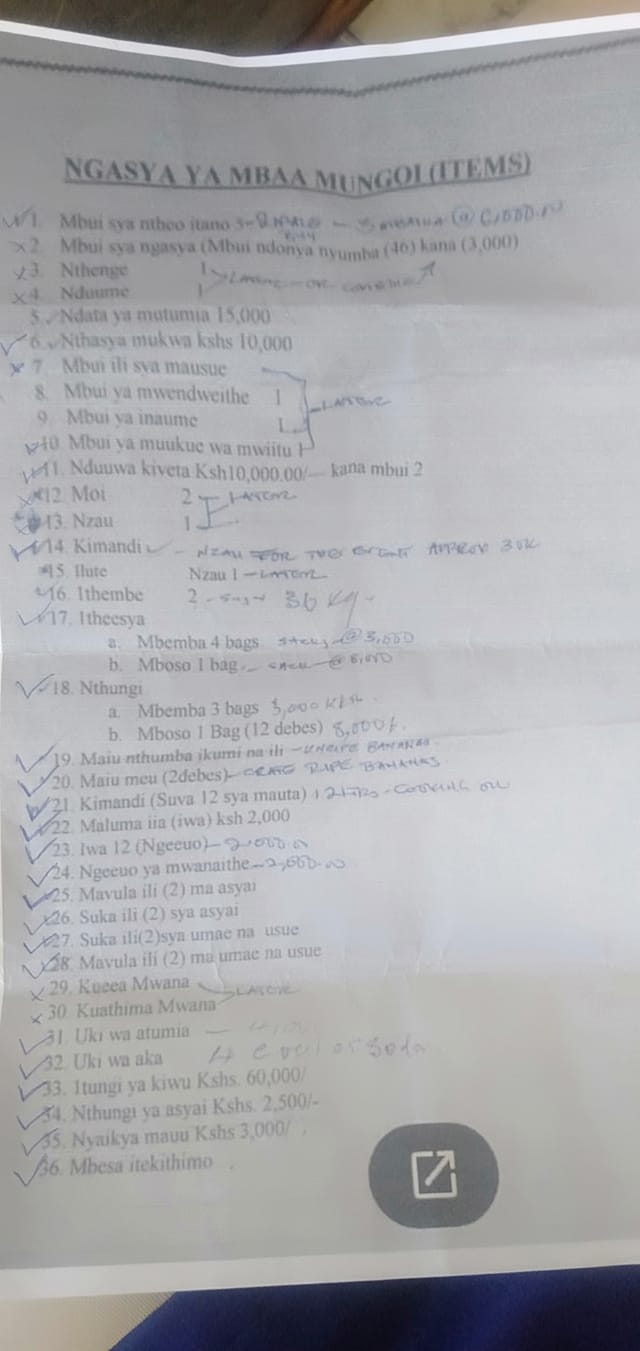 NGASYA YA MBAA MUNGOI (ITEMS)
1. Mbui sya ntheo itano 5-
2. Mbui sya ngasya (Mbui ndonya nyumba (46) kana (3,000)
3. Nthenge 1
4. Nduume 1 LATER - OR
5. Ndata ya mutumia 15,000
6. Nthasya mukwa kshs 10,000
7. Mbui ili sya mausue
8. Mbui ya mwendweithe 1
9. Mbui ya inaume 1 LATER
10. Mbui ya muukue wa mwiitu 1
11. Nduuwa kiveta Ksh10,000.00/- kana mbui 2
12. Moi 2 LATER
13. Nzau 1
14. Kimandi - NZAU FOR THE EVENT APPROX 30K
15. Ilute Nzau 1 - LATER
16. Ithembe 2 - 36 Kg -
17. Itheesya
a. Mbemba 4 bags SACKS @ 3,000
b. Mboso 1 bag - SACK - @ 8,000
18. Nthungi
a. Mbemba 3 bags 3,000 Ksh
b. Mboso 1 Bag (12 debes) 8,000/-
19. Maiu nthumba ikumi na ili - UNRIPE BANANAS
20. Maiu meu (2debes) - CRATE RIPE BANANAS
21. Kimandi (Suva 12 sya mauta) 12 LTRS - COOKING OIL
22. Maluma iia (iwa) ksh 2,000
23. Iwa 12 (Ngeeuo) - 2,000.00
24. Ngeeuo ya mwanaithe - 2,000.00
25. Mavula ili (2) ma asyai
26. Suka ili (2) sya asyai
27. Suka ili(2)sya umae na usue
28. Mavula ili (2) ma umae na usue
29. Kueea Mwana
30. Kuathima Mwana LATER
31. Uki wa atumia -
32. Uki wa aka 4 soda
33. Itungi ya kiwu Kshs. 60,000/
34. Nthungi ya asyai Kshs. 2,500/-
35. Nyaikya mauu Kshs 3,000/
36. Mbesa itekithimo